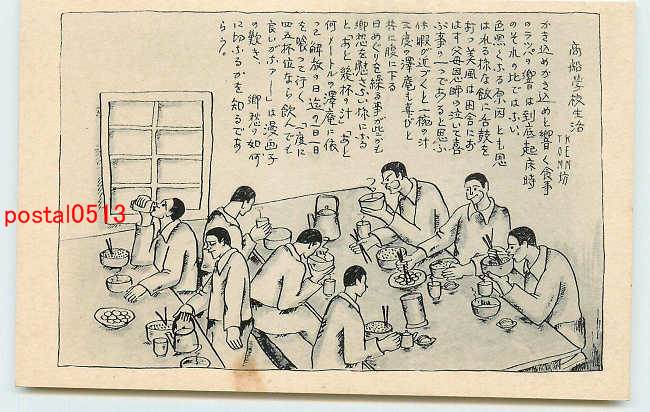 商船学校生活
KEN
TOM坊
かき込めかき込めと響く食事
のラッパの響は到底起床時
のそれの比ではない。
色黒くなる原因とも思
はれる様な飯に舌鼓を
打つ美風は田舎にお
はす父母恩師の泣いて喜
ぶ事の一つであると思ふ
休暇が近づくと一椀の汁
三度の澤庵も喜びと
共に腹に下る
日めくりを繰る事が些少も
郷愁を慰さない様になる
と「あと幾杯の汁」「あと
何メートルの澤庵」に依
って解放の日迄の一日一日
を喰って行く「一度に
四五杯位なら飲んでも
良いがなァー」は漫画子
の歎き、郷愁の如何
に切なるかを知るであ
らう。
postal0513